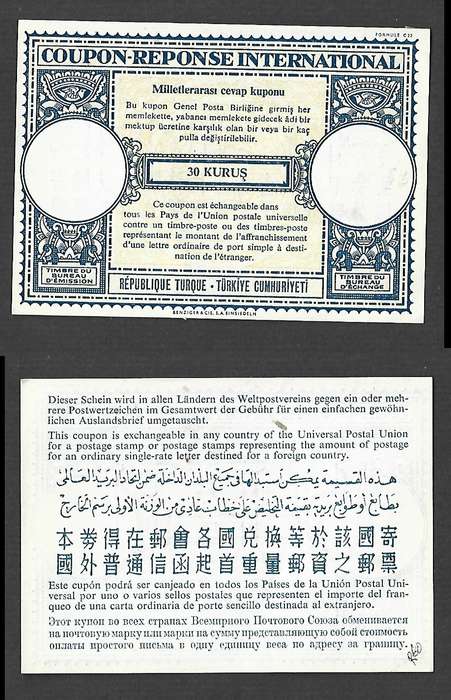 FORMULE C 22
COUPON-REPONSE INTERNATIONAL
Milletlerarası cevap kuponu
Bu kupon Genel Posta Birliğine girmiş her
memlekette, yabancı memlekete gidecek âdi bir
mektup ücretine karşılık olan bir veya bir kaç
pulla değiştirilebilir.
30 KURUŞ
Ce coupon est échangeable dans
tous les Pays de l'Union postale universelle
contre un timbre-poste ou des timbres-poste
représentant le montant de l'affranchissement
d'une lettre ordinaire de port simple à desti-
nation de l'étranger.
TIMBRE DU
BUREAU
D'ÉMISSION
TIMBRE DU
BUREAU
D'ÉCHANGE
RÉPUBLIQUE TURQUE - TÜRKİYE CUMHURİYETİ
BENZIGER & CIE, S.A. EINSIEDELN
Dieser Schein wird in allen Ländern des Weltpostvereins gegen ein oder meh-
rere Postwertzeichen im Gesamtwert der Gebühr für einen einfachen gewöhn-
lichen Auslandsbrief umgetauscht.
This coupon is exchangeable in any country of the Universal Postal Union
for a postage stamp or postage stamps representing the amount of postage
for an ordinary single-rate letter destined for a foreign country.
هذه القسيمة يمكن استبدالها في جميع البلدان الداخلة ضمن اتحاد البريد العالمي
بطابع أو طوابع بريد بقيمة التخليص على خطاب عادي من الوزنة الأولى برسم الخارج
本券得在郵會各國兌換等於該國寄
國外普通信函起首重量郵資之郵票
Este cupón podrá ser canjeado en todos los Países de la Unión Postal Uni-
versal por uno o varios sellos postales que representen el importe del fran-
queo de una carta ordinaria de porte sencillo destinada al extranjero.
Этот купон во всех странах Всемирного Почтового Союза обменивается
на почтовую марку или марки на сумму представляющую собой стоимость
оплаты простого письма в одну единицу веса по адресу за границу.